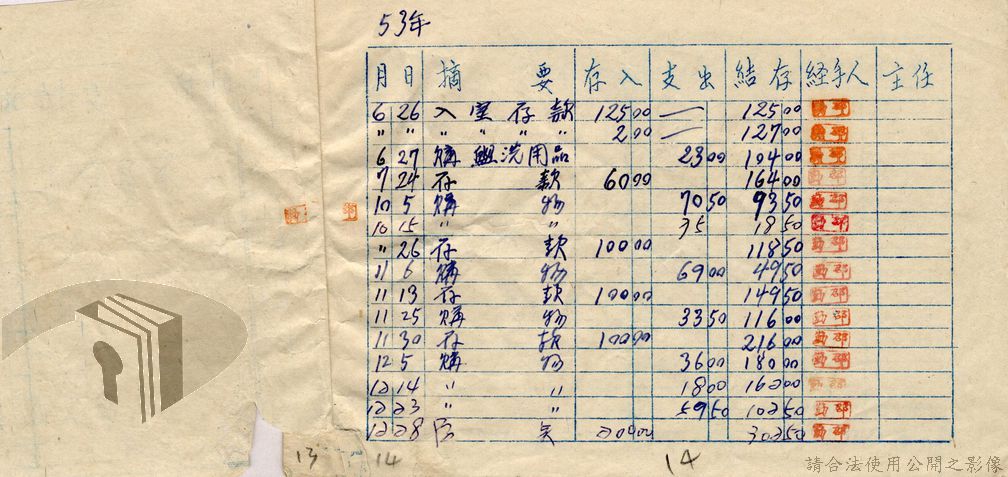 53年
月 日 摘 要 存入 支出 結存 経手人 主任
6 26 入室存款 12500 — 12500
〃 〃 〃 〃 〃 〃 200 — 12700
6 27 購盥洗用品 2300 10400
7 24 存 款 6000 16400
10 5 購 物 7050 9350
10 15 〃 〃 75 1850
〃 26 存 款 10000 11850
11 6 購 物 6900 4950
11 13 存 款 10000 14950
11 25 購 物 3350 11600
11 30 存 款 10000 21600
12 5 購 物 3600 18000
12 14 〃 〃 1800 16200
12 23 〃 〃 5950 10250
12 28 20000 30250
13 14 14
請合法使用公開之影像